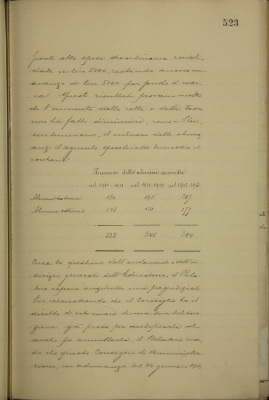 523
fronte alle spese straordinarie consoli-
date in lire 5000, restando ancora un
avanzo di lire 5000 per fondo di riser-
va. Questi risultati provano inoltre
che l'aumento della retta e della tassa
non ha fatto diminuire, come i
il numero delle alun-
ne, il seguente specchietto dimostra il
contrario:
Numero delle alunne iscritte
nel 1910-1911 nel 1911-1912 nel 1912-1913
Alunne interne
Alunne esterne 177
222 344
Circa la questione dell'andamento e dell'in-
dirizzo generale dell'Educatorio, il Rela-
tore espone anzitutto una pregiudiziale
che il Consiglio ha il
diritto di esaminare una delibera-
zione già presa, per modificarla od
anche per annullarla, il Relatore ricor-
da che questo Consiglio di Amministra-
zione, in adunanza del gennaio